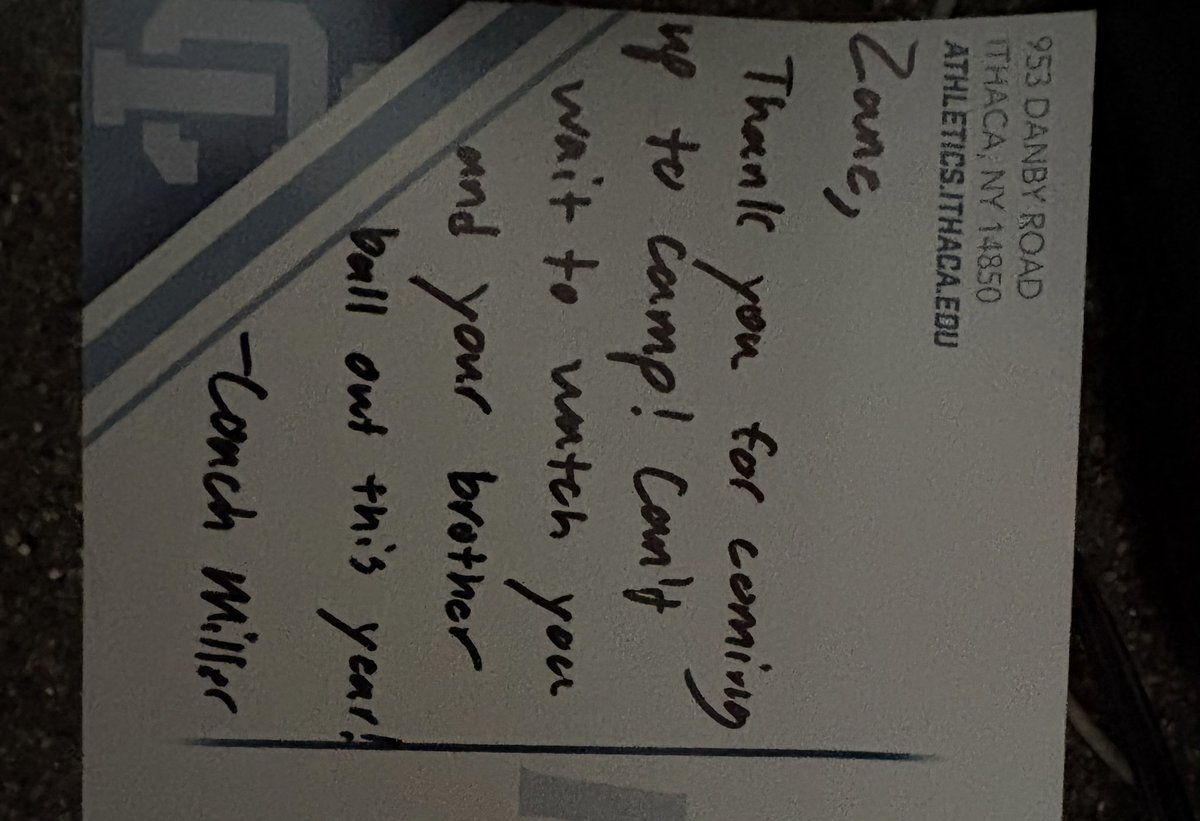 953 DANBY ROAD
ITHACA, NY 14850
ATHLETICS.ITHACA.EDU
Zane,
Thank you for coming
up to camp! Can't
wait to watch you
and your brother
ball out this year!
-Coach Miller